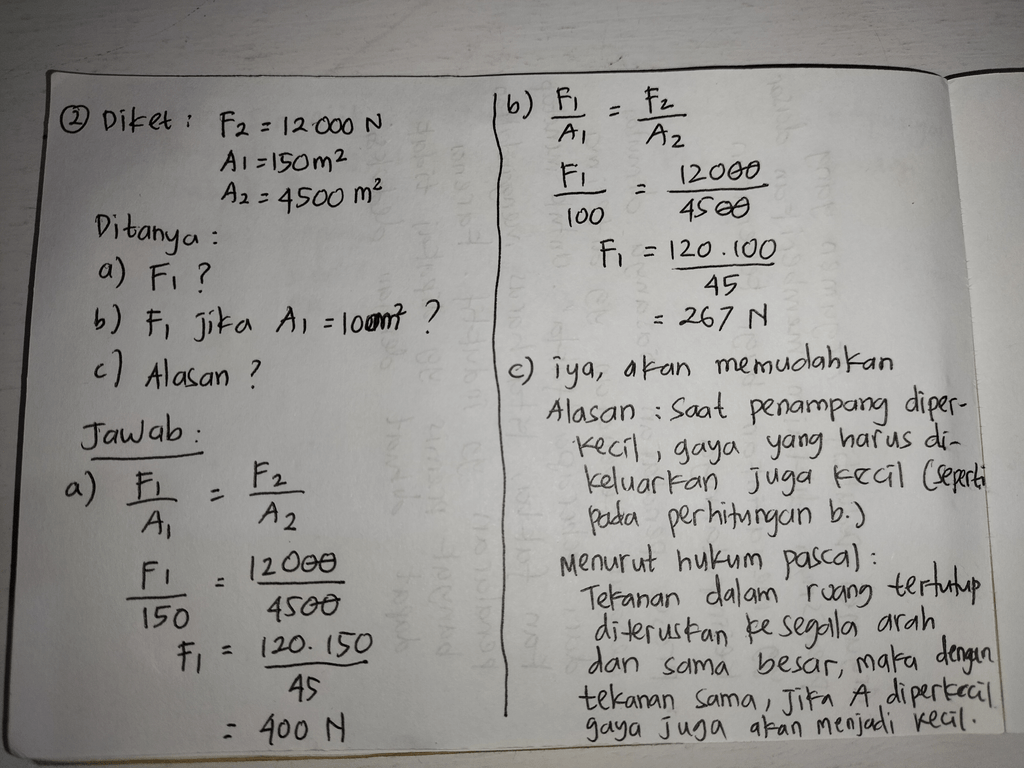 ② Diket : F₂ = 12.000 N
A₁ = 150 m²
A₂ = 4500 m²
Ditanya :
a) F₁ ?
b) F₁ jika A₁ = 100m² ?
c) Alasan ?
Jawab :
a) F₁/A₁ = F₂/A₂
F₁/150 = 12000/4500
F₁ = 120.150/45
= 400 N
b) F₁/A₁ = F₂/A₂
F₁/100 = 12000/4500
F₁ = 120.100/45
= 267 N
c) iya, akan memudahkan
Alasan : Saat penampang diper-
kecil, gaya yang harus di-
keluarkan juga kecil (seperti
pada perhitungan b.)
Menurut hukum pascal :
Tekanan dalam ruang tertutup
diteruskan ke segala arah
dan sama besar, maka dengan
tekanan sama, Jika A diperkecil
gaya juga akan menjadi kecil.